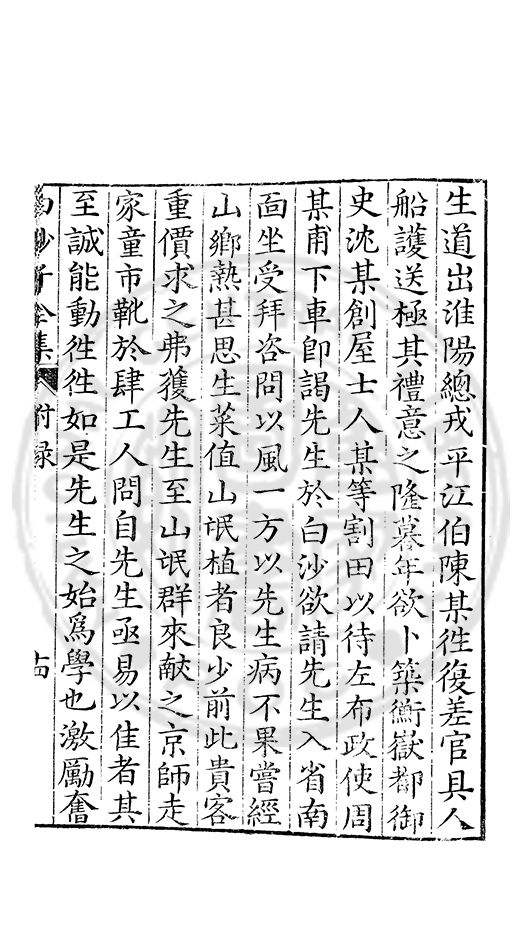 生道出淮陽總戎平江伯陳某徃復差官具人
船護送極其禮意之隆暮年欲卜築衡嶽都御
史沈某創屋士人某等割田以待左布政使周
某甫下車卽謁先生於白沙欲請先生入省南
面坐受拜咨問以風一方以先生病不果嘗經
山鄉熱甚思生菜值山氓植者良少前此貴客
重價求之弗獲先生至山氓群來獻之京師走
家童市靴於肆工人問自先生亟易以佳者其
至誠能動徃徃如是先生之始爲學也激勵奮
白沙子全集 附録